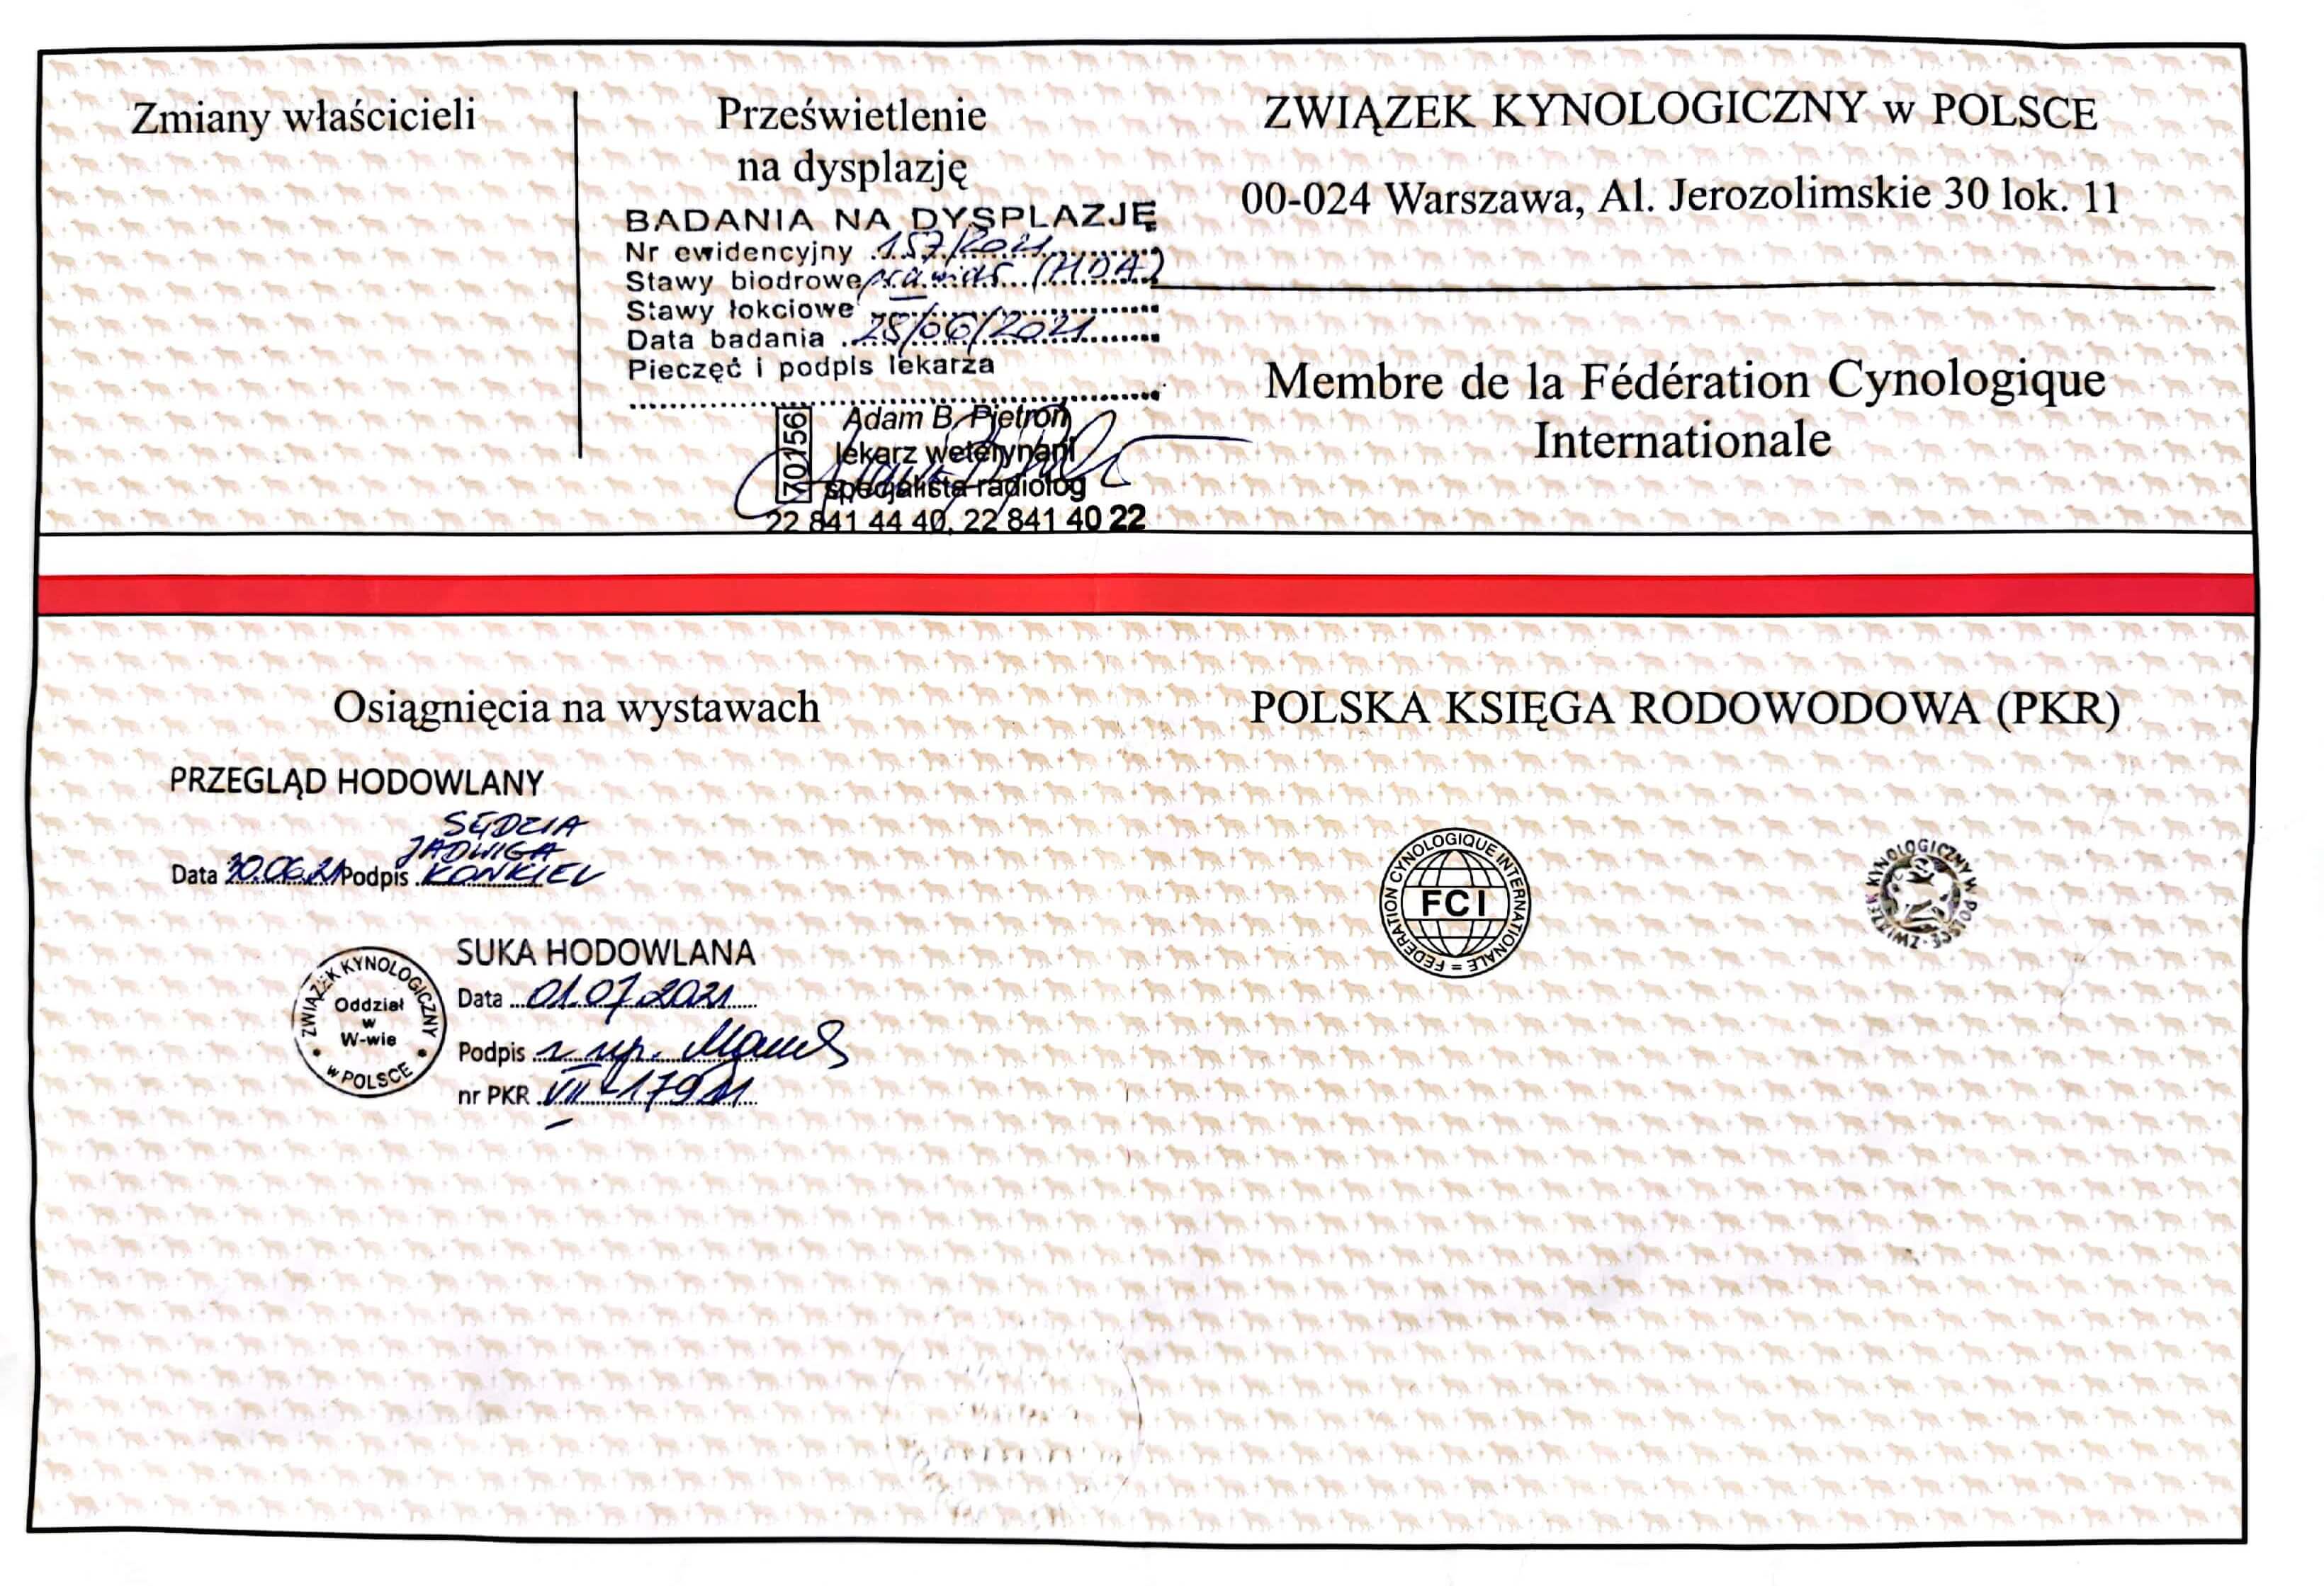 Zmiany właścicieli
Prześwietlenie
na dysplazję
BADANIA NA DYSPLAZJĘ
Nr ewidencyjny 157/2021
Stawy biodrowe (HDA)
Stawy łokciowe
Data badania 28/06/2021
Pieczęć i podpis lekarza
70156
Adam B. Pietroń
lekarz weterynarii
specjalista radiolog
22 841 44 40, 22 841 40 22
ZWIĄZEK KYNOLOGICZNY w POLSCE
00-024 Warszawa, Al. Jerozolimskie 30 lok. 11
Membre de la Fédération Cynologique
Internationale
Osiągnięcia na wystawach
PRZEGLĄD HODOWLANY
SĘDZIA
JADWIGA
Data 30.06.21 Podpis KONKIEL
SUKA HODOWLANA
Data 01.07.2021
Podpis
nr PKR VII-17911
ZWIĄZEK KYNOLOGICZNY
Oddział
w
W-wie
w POLSCE
POLSKA KSIĘGA RODOWODOWA (PKR)
FEDERATION CYNOLOGIQUE INTERNATIONALE
FCI
ZWIĄZEK KYNOLOGICZNY W POLSCE